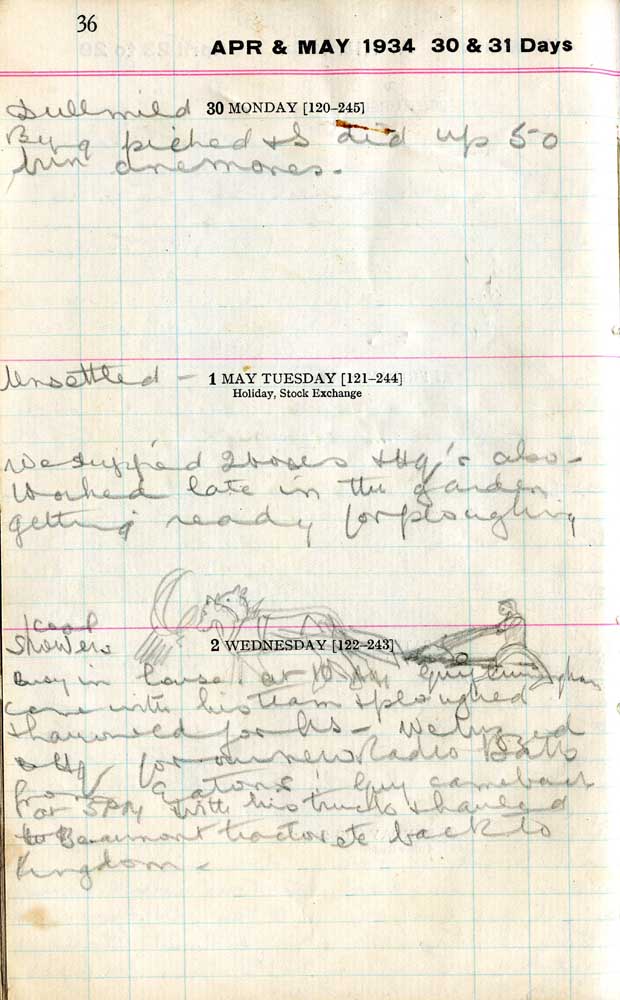 36
APR & MAY 1934 30 & 31 Days
Dull mild 30 MONDAY [120–245]
picked & I did up 50
bun anemones.
Unsettled – 1 MAY TUESDAY [121–244]
Holiday, Stock Exchange
We 2 boxes & Hq's also –
Worked late in the garden
getting ready for ploughing
Cool
Showers
2 WEDNESDAY [122–243]
Busy in house. at 10 Guy
came with his team & ploughed
& harrowed for us – We
& Hq for our new Radio
from Eatons. Guy came back
at 5 PM with his truck & hauled
Beaumont tractor etc back to
Kingdom –